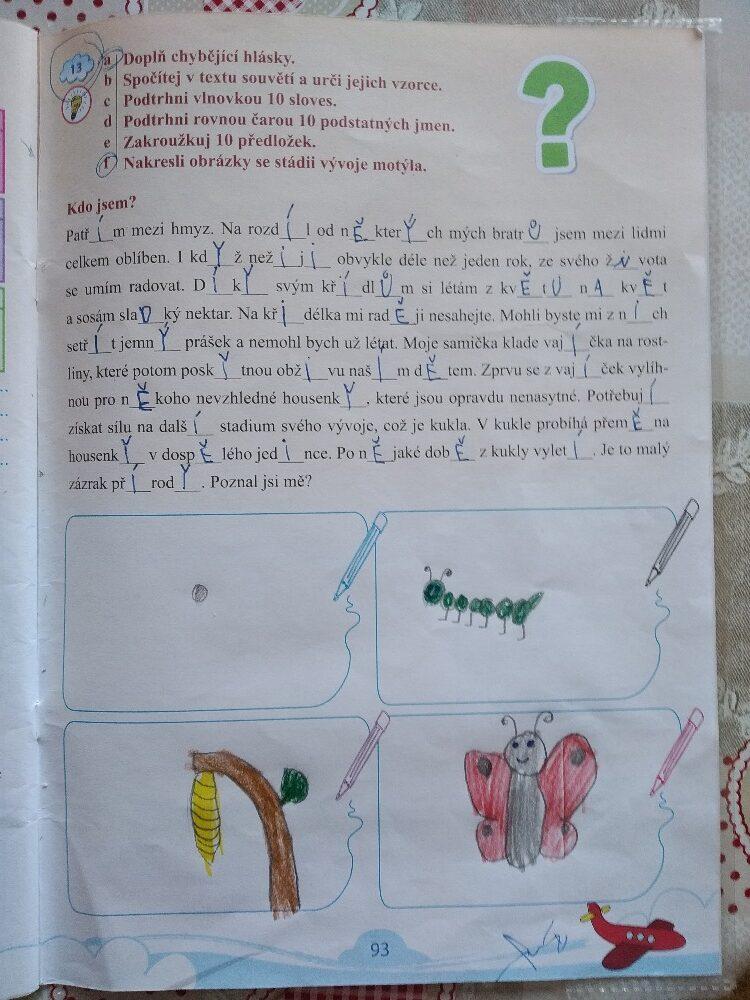 13
a Doplň chybějící hlásky.
b Spočítej v textu souvětí a urči jejich vzorce.
c Podtrhni vlnovkou 10 sloves.
d Podtrhni rovnou čarou 10 podstatných jmen.
e Zakroužkuj 10 předložek.
f Nakresli obrázky se stádii vývoje motýla.
?
Kdo jsem?
Patřím mezi hmyz. Na rozdíl od nĚkterÝch mých bratrŮ jsem mezi lidmi
celkem oblíben. I kdYž než i ji obvykle déle než jeden rok, ze svého života
se umím radovat. DíkY svým křídlŮm si létám z kvĚtU nA kvĚt
a sosám slaDký nektar. Na křidélka mi radĚji nesahejte. Mohli byste mi z nich
setřít jemnÝ prášek a nemohl bych už létat. Moje samička klade vajíčka na rost-
liny, které potom poskYtnou obživu našim dĚtem. Zprvu se z vajíček vylíh-
nou pro nĚkoho nevzhledné housenkY, které jsou opravdu nenasytné. Potřebují
získat sílu na další stadium svého vývoje, což je kukla. V kukle probíhá přemĚna
housenkY v dospĚlého jedince. Po nĚjaké dobĚ z kukly vyletí. Je to malý
zázrak přírodY. Poznal jsi mě?
93